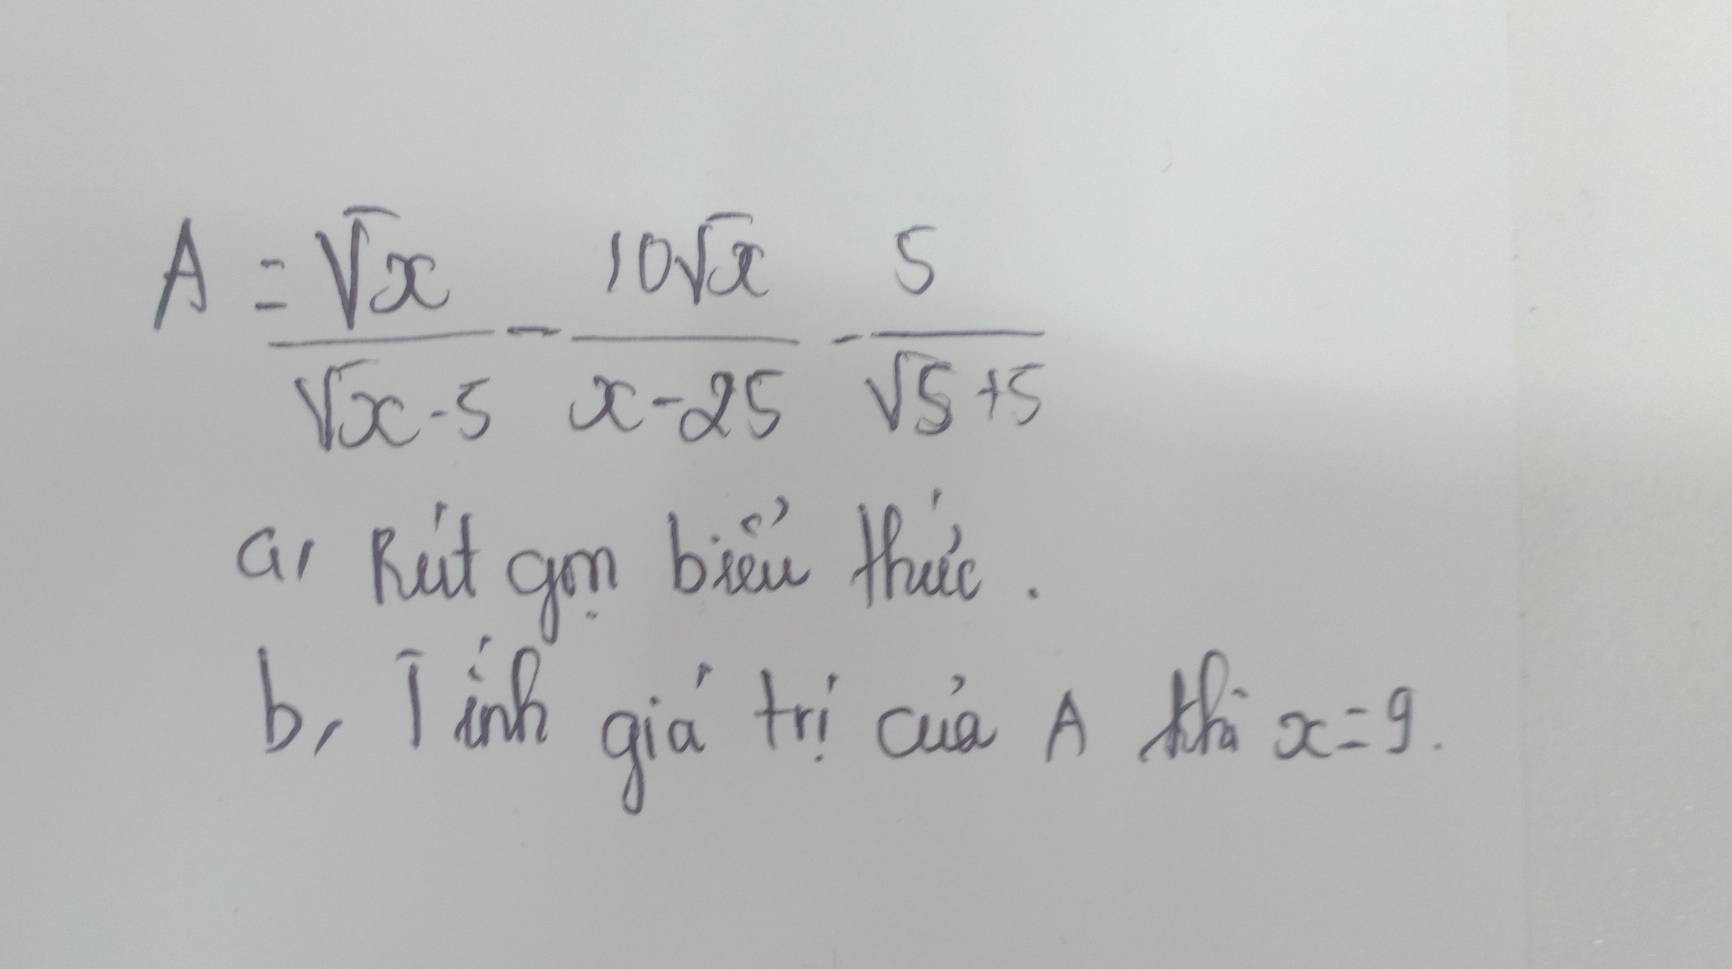 A = √x / (√x - 5) - 10√x / (x - 25) - 5 / (√5 + 5)
a, Rút gọn biểu thức.
b, Tính giá trị của A khi x = 9.